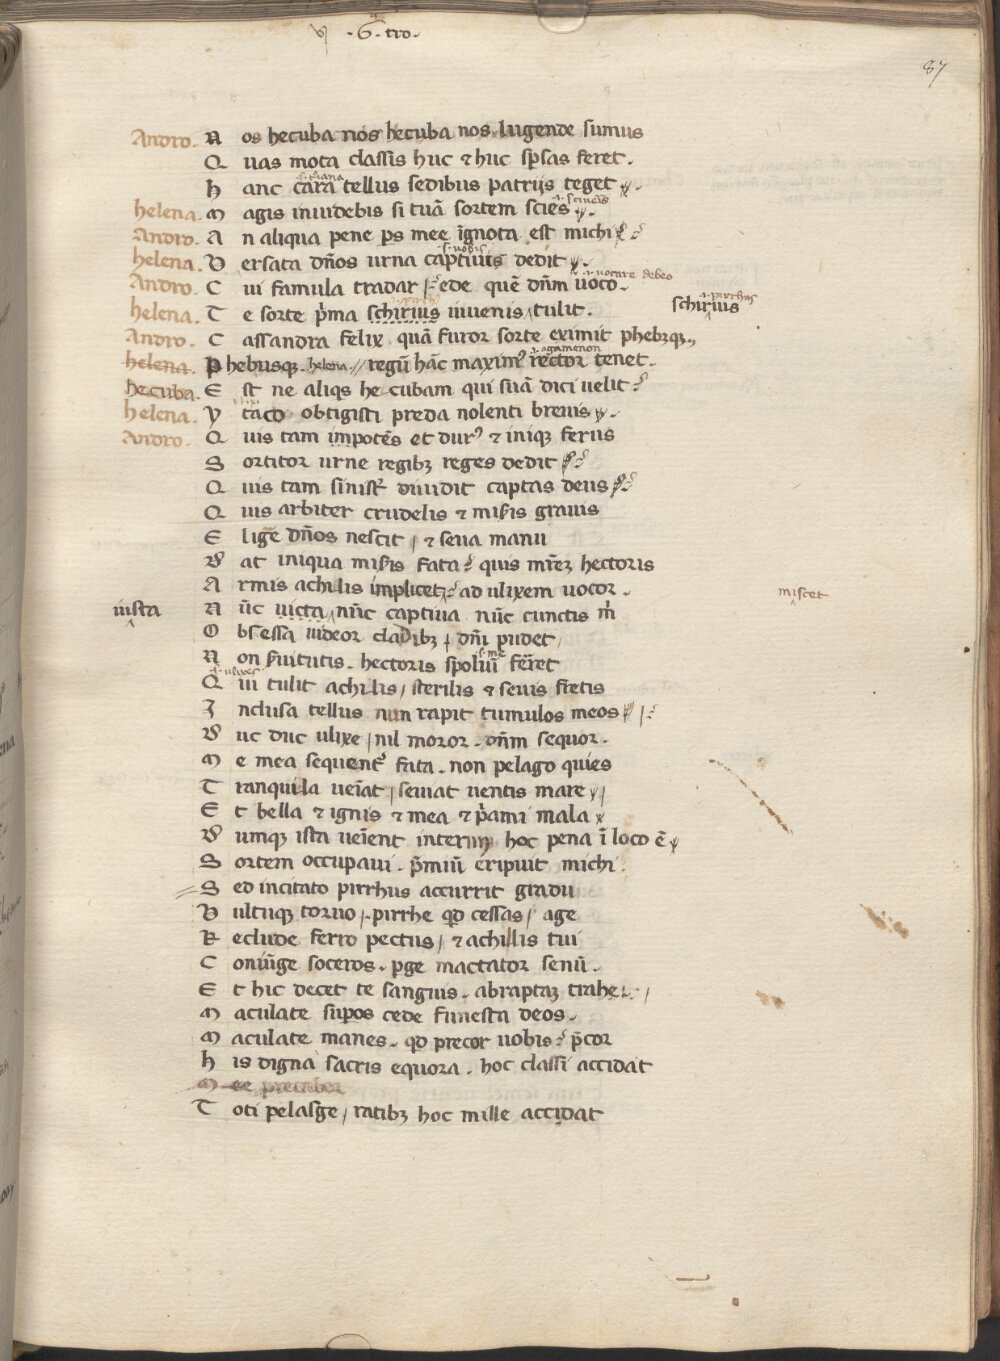 vj .G. tro.
87
Andro. N os hecuba nos hecuba nos lugende sumus
Q uas mota classis huc ⁊ huc sp̄sas feret.
.s. t̄iana
h anc cara tellus sedibus patrijs teget
.i. sciueris
helena. M agis inuidebis si tuā sortem scies
Andro. A n aliqua pene p̱s mee īgnota est michi
.s. nobis
helena. V ersata dn̄os urna captiuis dedit
.i. uocare debeo
Andro. C ui famula tradar / ede quē dn̄m uoco.
.i. pirrho
helena. T e sorte p̄ma schirius iuuenis tulit.
.i. pirrhus
schirius
Andro. C assandra felix quā furor sorte eximit phebꝫqꝫ
.i. agamenon
helena. P hebusqꝫ. helena. // regū hāc maximꝰ rector tenet.
hecuba. E st ne aliqs hecubam qui suā dici uelit
helena. V taco obtigisti preda nolenti breuis
Andro. Q uis tam impotēs et durꝰ ⁊ iniqꝫ ferus
S ortitor urne regibꝫ reges dedit
Q uis tam sinist̄ diuidit captas deus
Q uis arbiter crudelis ⁊ mis̄is grauis
E liḡe dn̄os nescit / ⁊ seua manu
D at iniqua mis̄is fata quis mr̄eꝫ hectoris
A rmis achilis implicet ad ulixem uocor.
miscet
iusta N ūc uicta nūc captiua nūc cunctis m̄
O bsessa uideor cladibꝫ / dn̄i pudet
.s. me
N on s̄uitutis. hectoris spoliū fer̄et
.s. ulixes
Q ui tulit achilis / sterilis ⁊ seuis fretis
I nclusa tellus non capit tumulos meos
D uc duc ulixe / nil moror. dn̄m sequor.
M e mea sequent̄ fata. non pelago quies
T ranquila ueīat / seuiat uentis mare
E t bella ⁊ ignis ⁊ mea ⁊ p̄ami mala
D umqꝫ ista ueīent interim hoc pena ī loco ē
S ortem occupaui. p̄miū eripuit michi.
S ed incitato pirrhus accurrit gradu
V ultuqꝫ toruo. pirrhe qd cessas / age
R eclude ferro pectus / ⁊ achillis tui
C oniūge soceros. p̱ge mactator senū.
E t hic decet te sanguis. abraptaꝫ trahe
M aculate sup̱os cede funesta deos.
M aculate manes. qd precor uobis p̄cor
h is digna sacris equora. hoc classi accidat
M ee precabor
T oti pelasge / ratibꝫ hoc mille accidat